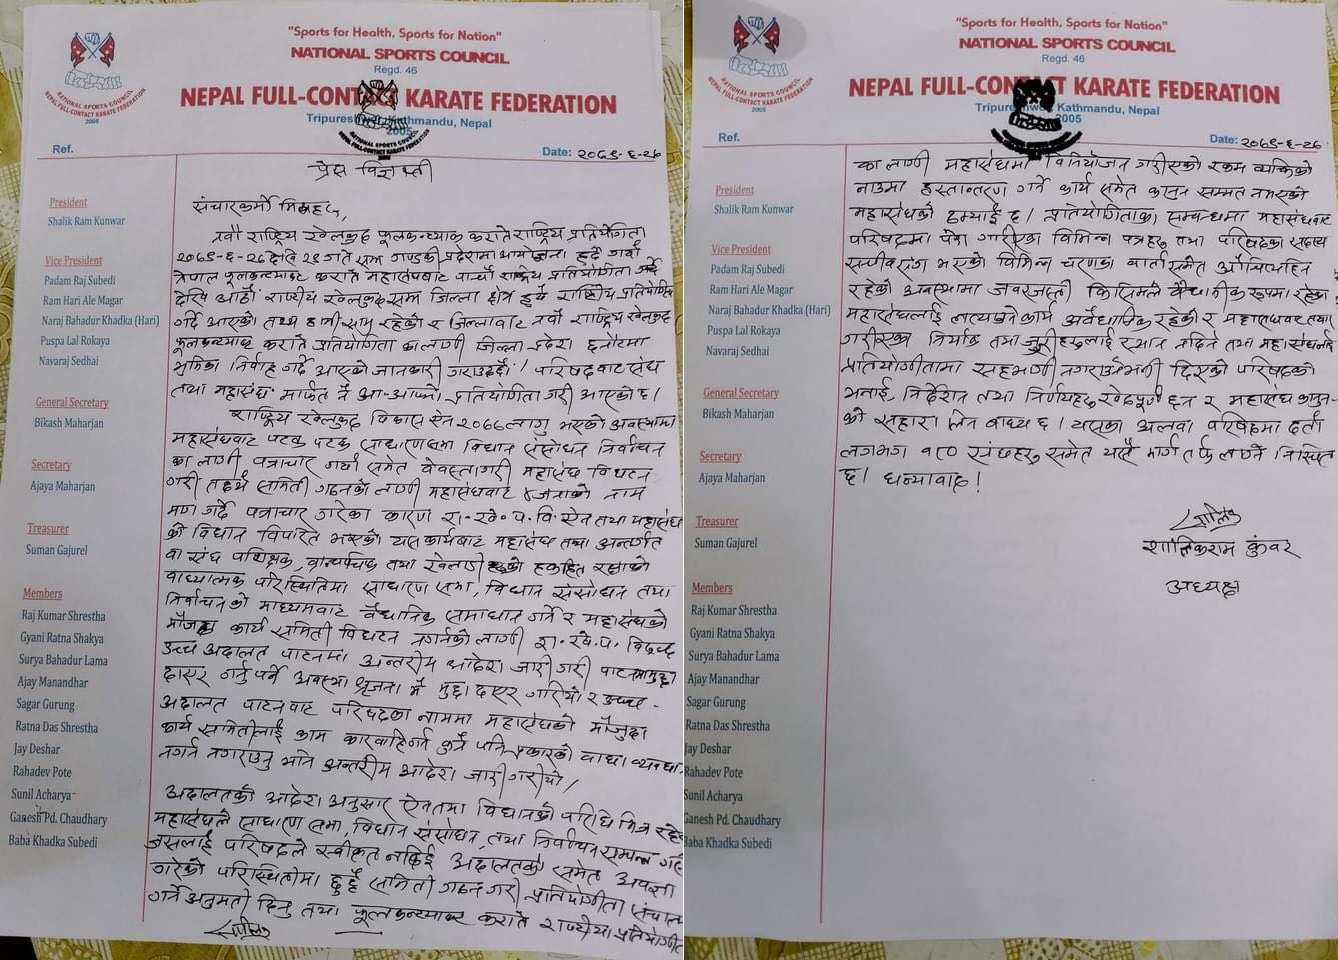 "Sports for Health, Sports for Nation"
NATIONAL SPORTS COUNCIL
Regd. 46
NEPAL FULL-CONTACT KARATE FEDERATION
Tripureshwor, Kathmandu, Nepal
2005
NATIONAL SPORTS COUNCIL
NEPAL FULL-CONTACT KARATE FEDERATION
2005
Ref.
Date: २०७९-६-२७
प्रेस विज्ञप्ती
President
Shalik Ram Kunwar
Vice President
Padam Raj Subedi
Ram Hari Ale Magar
Naraj Bahadur Khadka (Hari)
Puspa Lal Rokaya
Navaraj Sedhai
General Secretary
Bikash Maharjan
Secretary
Ajaya Maharjan
Treasurer
Suman Gajurel
Members
Raj Kumar Shrestha
Gyani Ratna Shakya
Surya Bahadur Lama
Ajay Manandhar
Sagar Gurung
Ratna Das Shrestha
Jay Deshar
Rahadev Pote
Sunil Acharya
Ganesh Pd. Chaudhary
Baba Khadka Subedi
संचारकर्मी मित्रहरु,
नवौं राष्ट्रिय खेलकुद फूलकन्ट्याक कराते राष्ट्रिय प्रतियोगिता
नेपाल फूलकन्ट्याक कराते महासंघबाट पाचौं राष्ट्रिय प्रतियोगिता
देखि आठौं राष्ट्रिय खेलकुद सम्म जिल्ला क्षेत्र हुदै राष्ट्रिय प्रतियोगिता
गर्दै आएको तथ्य हामी सामु रहेको र जिल्लाबाट नवौं राष्ट्रिय खेलकुद
फूलकन्ट्याक कराते प्रतियोगिता का लागी जिल्ला प्रदेश छनोटमा
भूमिका निर्वाह गर्दै आएको जानकारी गराउदछौं। परिषदबाट संघ
तथा महासंघ मार्फत नै आ-आफ्नो प्रतियोगिता गरी आएको छ।
राष्ट्रिय खेलकुद विकास ऐन २०७७ लागु भएको अवस्थामा
महासंघबाट पटक पटक साधारण सभा विधान संसोधन निर्वाचन
का लागी पत्राचार गर्दा समेत वेवास्ता गरी महासंघ विघटन
गरी तदर्थ समिती गठनको लागी महासंघबाट ५ जनाको नाम
माग गर्दै पत्राचार गरेका कारण रा. खे. प. वि. ऐन तथा महासंघ
को विधान विपरित भएको यस कार्यबाट महासंघ तथा अन्तर्गत
वा संघ प्रशिक्षक, तथा खेलाडी हरुको हकहित रक्षाको
वाध्यात्मक परिस्थितिमा साधारण सभा, विधान संसोधन तथा
निर्वाचनको माध्यमबाट वैधानिक समाधान गर्न र महासंघको
मौजुदा कार्य समिती विघटन नगर्नको लागी रा. खे. प. विरुद्ध
उच्च अदालत पाटनमा अन्तरीम आदेश जारी गरी पाउन मुद्दा
दायर गर्नु पर्ने अवस्था श्रृजना भै मुद्दा दायर गरियो र उच्च
अदालत पाटनबाट परिषदका नाममा महासंघको मौजुदा
कार्य समितीलाई काम कारवाहि गर्न कुनै पनि प्रकारको वाधा व्यवधान
नगर्न नगराउनु भनि अन्तरीम आदेश जारी गरीयो।
अदालतको आदेश अनुसार ऐन तथा विधानको परिधि भित्र रहेर
महासंघले साधारण सभा, विधान संसोधन, तथा निर्वाचन सम्पन्न
जसलाई परिषदले स्वीकृत नदिई अदालतको समेत अवज्ञा
गरेको परिस्थितीमा छुट्टै समिती गठन गरी प्रतियोगीता संचालन
गर्ने अनुमती दिनु तथा फूलकन्ट्याक कराते राष्ट्रिय प्रतियोगीता
"Sports for Health, Sports for Nation"
NATIONAL SPORTS COUNCIL
Regd. 46
NEPAL FULL-CONTACT KARATE FEDERATION
Tripureshwor, Kathmandu, Nepal
2005
NATIONAL SPORTS COUNCIL
NEPAL FULL-CONTACT KARATE FEDERATION
2005
Ref.
Date: २०७९-६-२७
President
Shalik Ram Kunwar
Vice President
Padam Raj Subedi
Ram Hari Ale Magar
Naraj Bahadur Khadka (Hari)
Puspa Lal Rokaya
Navaraj Sedhai
General Secretary
Bikash Maharjan
Secretary
Ajaya Maharjan
Treasurer
Suman Gajurel
Members
Raj Kumar Shrestha
Gyani Ratna Shakya
Surya Bahadur Lama
Ajay Manandhar
Sagar Gurung
Ratna Das Shrestha
Jay Deshar
Rahadev Pote
Sunil Acharya
Ganesh Pd. Chaudhary
Baba Khadka Subedi
का लागी महासंघमा विनियोजन गरीएको रकम व्यक्तिको
नाउमा हस्तान्तरण गर्ने कार्य समेत कानुन सम्मत नभएको
महासंघको ठम्याई छ। प्रतियोगिताका सम्बन्धमा महासंघबाट
परिषदमा पेश गरिएका विभिन्न पत्रहरु तथा परिषदका सदस्य
सचीव संग भएको विभिन्न चरणका वार्ता समेत औचित्यहिन
रहेको अवस्थामा जवरजस्ती किसिमले वैधानीक रुपमा रहेका
महासंघलाई कार्य अवैधानिक रहेको र महासंघबाट
गरीएका निर्णय तथा जुरीहरुलाई स्थान नदिने तथा महासंघलाई
प्रतियोगीतामा सहभागी नगराउने भनी दिएको परिषदको
भनाई, निर्देशन तथा निर्णयहरु खेदपूर्ण छन र महासंघ कानुन-
को सहारा लिन वाध्य छ। यसका अलवा परिषदमा दर्ता
लगभग १८० संघहरु समेत यसै मार्ग तर्फ लाग्ने निश्चित
छ। धन्यावाद!
शालिकराम कुंवर
अध्यक्ष